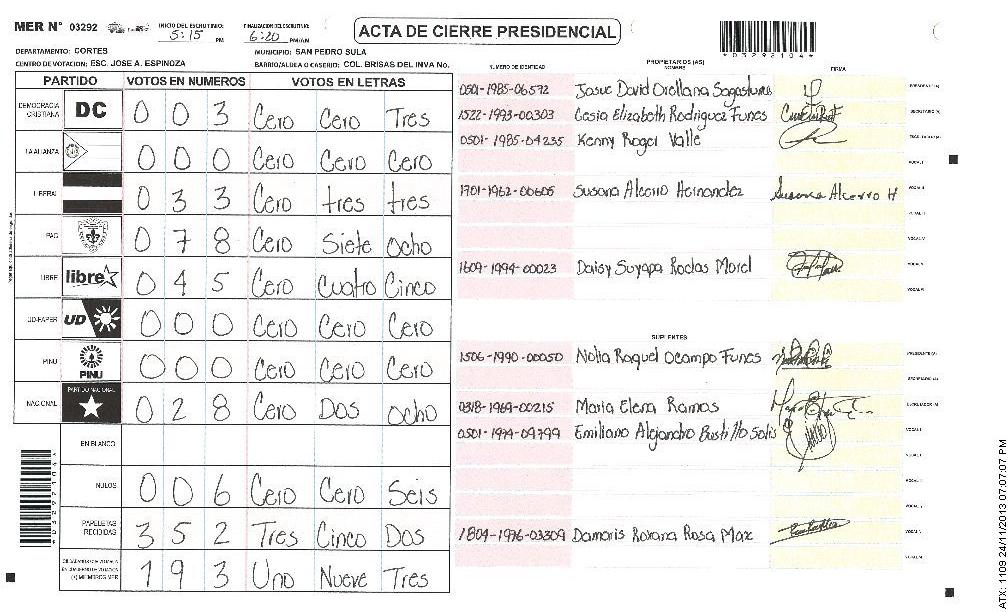 MER N° 03292 INICIO DEL ESCRUTINIO: 5:15 PM FINALIZACION DEL ESCRUTINIO: 6:20 PM/AM ACTA DE CIERRE PRESIDENCIAL
DEPARTAMENTO: CORTES MUNICIPIO: SAN PEDRO SULA
CENTRO DE VOTACION: ESC. JOSE A. ESPINOZA BARRIO/ALDEA O CASERIO: COL. BRISAS DEL INVA No.
PARTIDO VOTOS EN NUMEROS VOTOS EN LETRAS
DEMOCRACIA CRISTIANA DC 0 0 3 Cero Cero Tres
LA ALIANZA 0 0 0 Cero Cero Cero
LIBERAL 0 3 3 Cero tres tres
PAC 0 7 8 Cero Siete Ocho
LIBRE libre 0 4 5 Cero Cuatro Cinco
UD-FAPER UD 0 0 0 Cero Cero Cero
PINU PINU 0 0 0 Cero Cero Cero
NACIONAL PARTIDO NACIONAL 0 2 8 Cero Dos ocho
EN BLANCO
NULOS 0 0 6 Cero Cero Seis
PAPELETAS RECIBIDAS 3 5 2 Tres Cinco Dos
1 9 3 Uno Nueve Tres
PROPIETARIOS (AS)
NUMERO DE IDENTIDAD NOMBRE FIRMA
0501-1985-06572 Josue David Orellana PRESIDENTE (A)
1522-1993-00303 Cesia Elizabeth Rodriguez Funes SECRETARIO (A)
0501-1985-04235 Kenny Roger Valle ESCRUTADOR (A)
VOCAL I
1701-1962-00605 Susana Alcerro Hernandez Susana Alcerro H VOCAL II
1609-1994-00023 Daisy Suyapa Rodas Morel
SUPLENTES
1506-1990-00050 Nolia Raquel Ocampo Funes PRESIDENTE (A)
SECRETARIO (A)
0318-1969-00215 Maria Elena Ramos ESCRUTADOR (A)
0501-1974-09799 Emiliano Alejandro Bustillo Solis VOCAL I
1804-1976-03309 Damaris Roxana Rosa Max
03292104
ATX: 1109 24/11/2013 07:07:07 PM